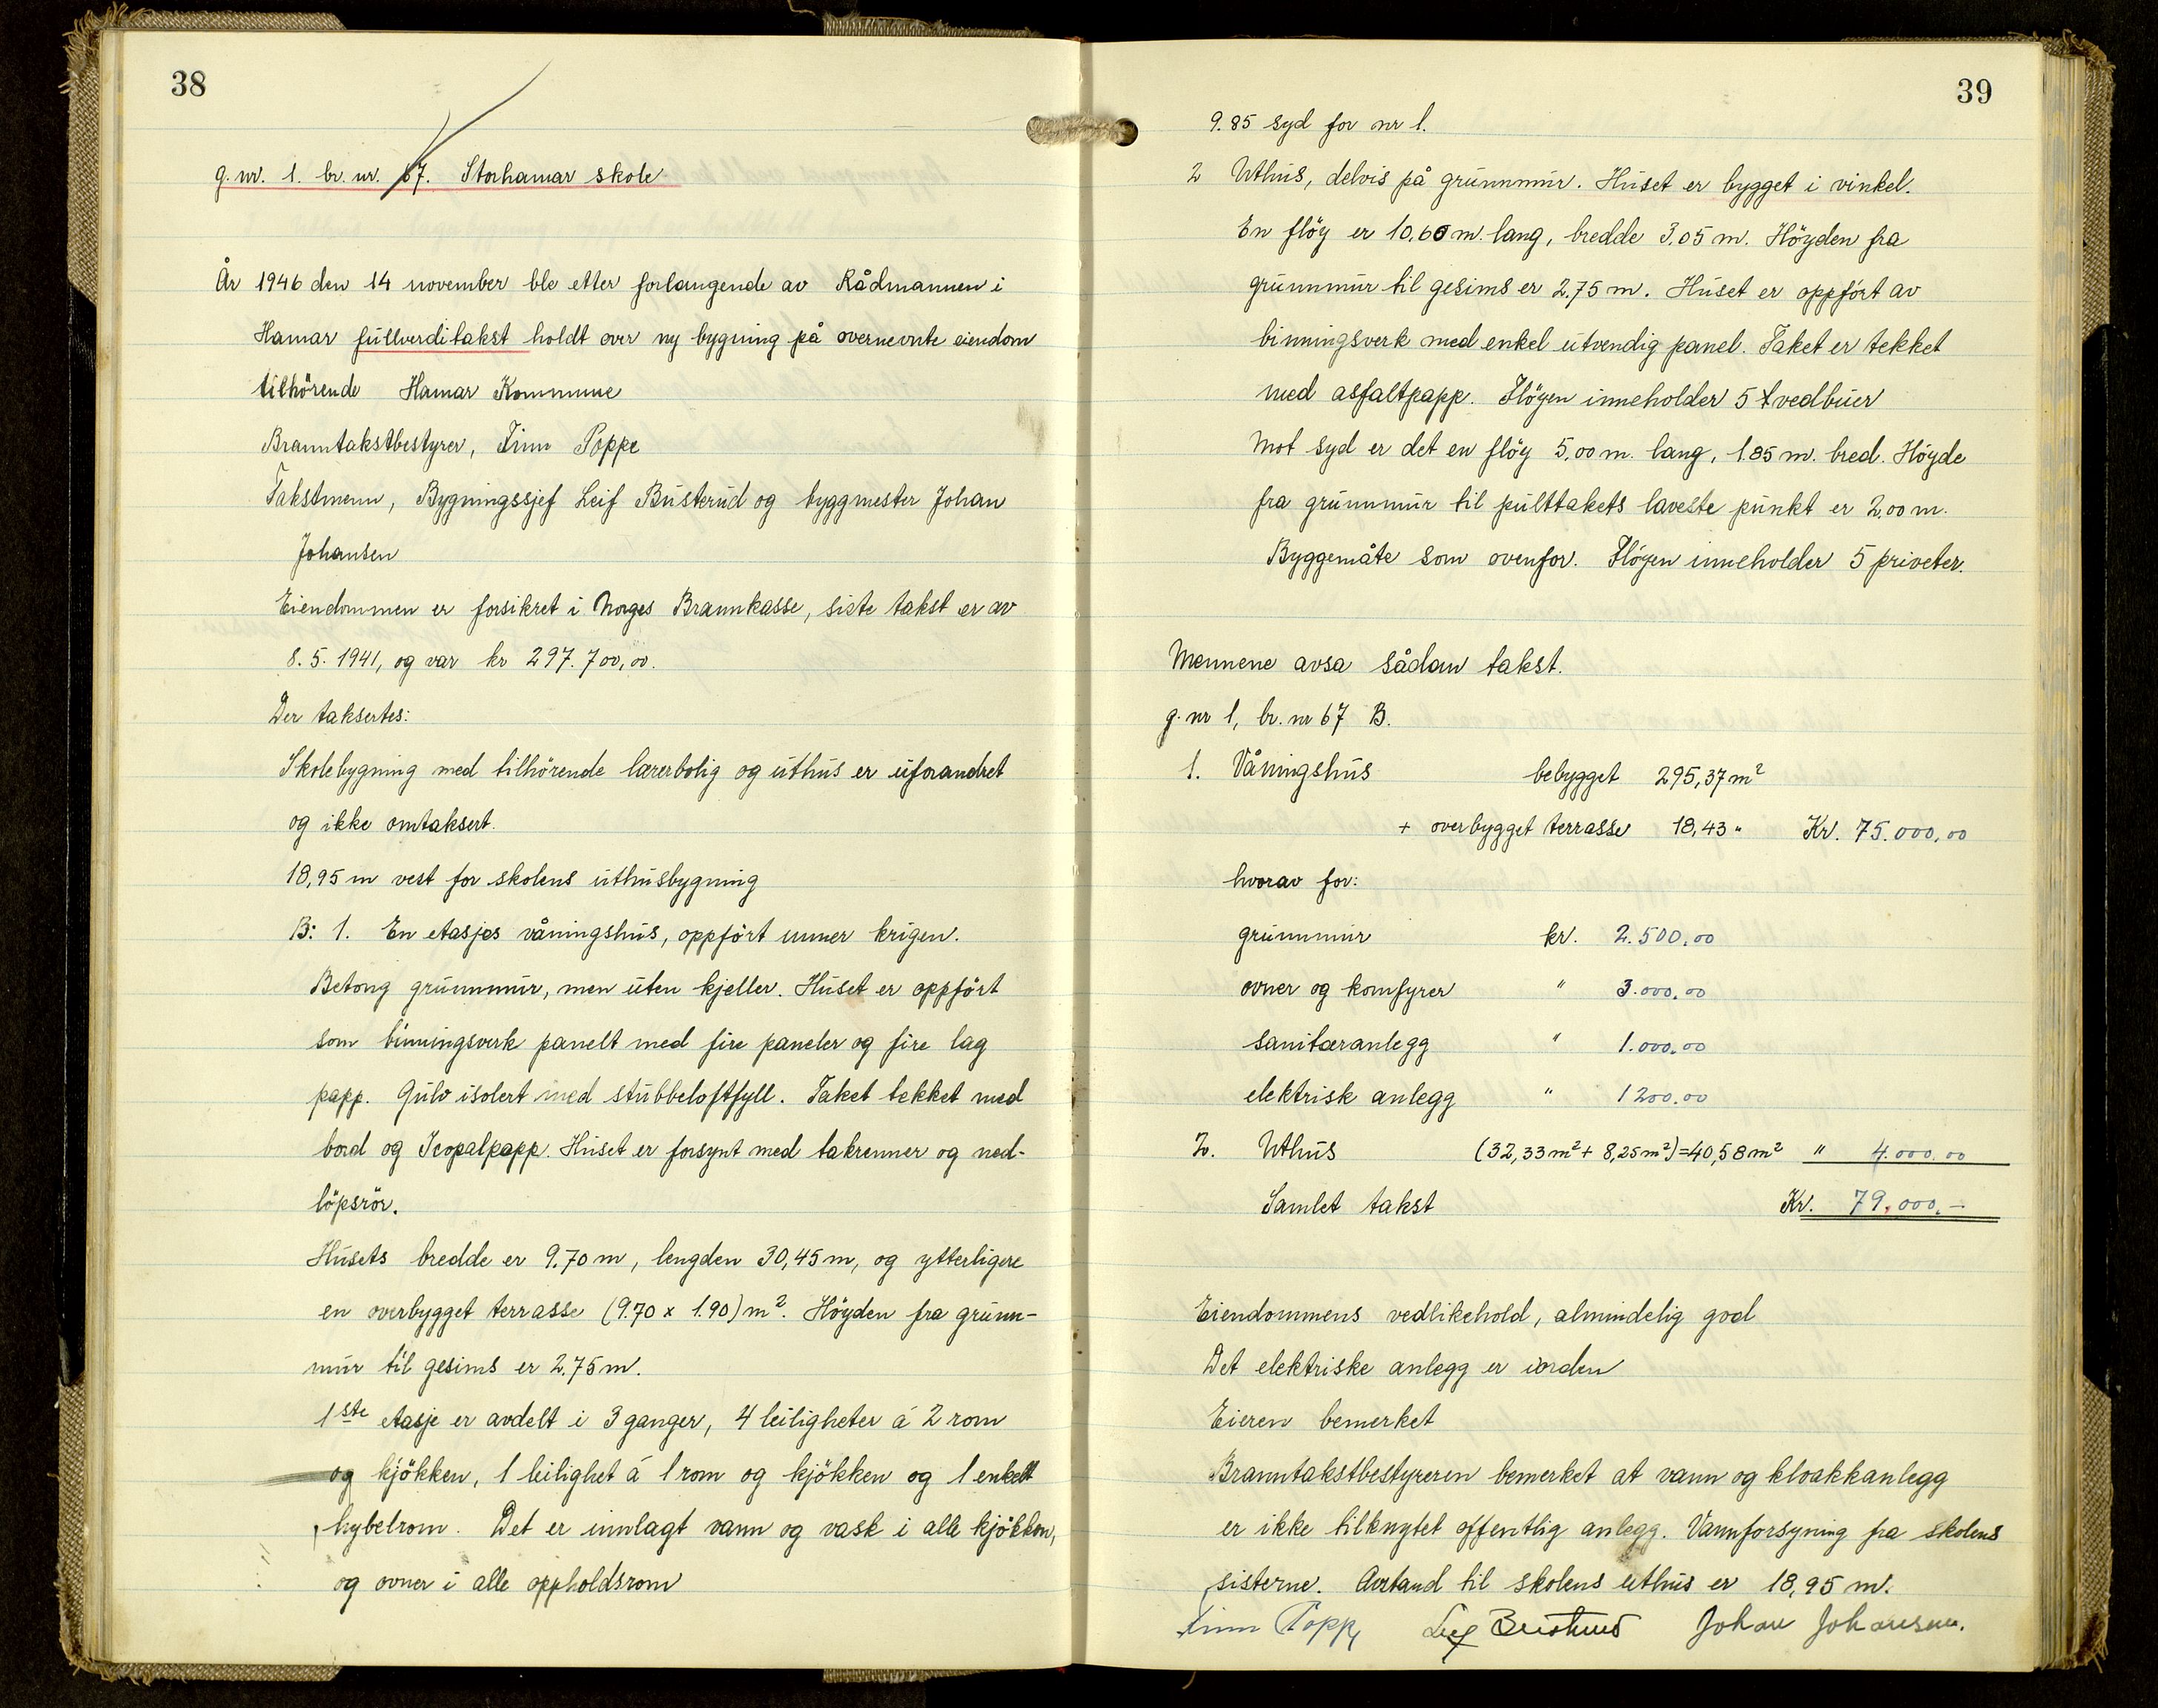 38
g. nr. 1. br. nr. 67. Storhamar skole
År 1946 den 14 november ble etter forlangende av Rådmannen i
Hamar fullverditakst holdt over ny bygning på overnevnte eiendom
tilhörende Hamar Kommune
Branntakstbestyrer, Finn Poppe
Takstmenn, Bygningssjef Leif Busterud og byggmester Johan
Johansen
Eiendommen er forsikret i Norges Brannkasse, siste takst er av
8. 5. 1941, og var kr 297.700,00.
Der taksertes:
Skolebygning med tilhörende lærerbolig og uthus er uforandret
og ikke omtaksert.
18,95 m vest for skolens uthusbygning
B: 1. En etasjes våningshus, oppfört unner krigen.
Betong grunnmur, men uten kjeller. Huset er oppfört
som binningsverk panelt med fire paneler og fire lag
papp. Gulv isolert med stubbeloftfyll. Taket tekket med
bord og Icopalpapp. Huset er forsynt med takrenner og ned-
löpsrör.
Husets bredde er 9.70 m, lengden 30,45 m, og ytterligere
en overbygget terrasse (9.70 x 1.90) m². Höyden fra grunn-
mur til gesims er 2.75 m.
1ste etasje er avdelt i 3 ganger, 4 leiligheter á 2 rom
og kjökken, 1 leilighet á 1 rom og kjökken og 1 enkelt
hybelrom. Det er innlagt vann og vask i alle kjökken,
og ovner i alle oppholdsrom
39
9.85 syd for nr 1.
2 Uthus, delvis på grunnmur. Huset er bygget i vinkel.
En flöy er 10.60 m. lang, bredde 3.05 m. Höyden fra
grunnmur til gesims er 2,75 m. Huset er oppfört av
binningsverk med enkel utvendig panel. Taket er tekket
med asfaltpapp. Flöyen inneholder 5 vedbuer
Mot syd er det en flöy 5,00 m. lang, 1.85 m. bred. Höyde
fra grunnmur til pulttakets laveste punkt er 2,00 m.
Byggemåte som ovenfor. Flöyen inneholder 5 priveter.
Mennene avsa sådan takst.
g. nr 1, br. nr 67 B.
1. Våningshus bebygget 295,37 m²
+ overbygget terrasse 18,43 " Kr. 75.000,00
hvorav for:
grunnmur kr. 2.500,00
ovner og komfyrer " 3.000,00
sanitæranlegg " 1.000,00
elektrisk anlegg " 1200,00
2. Uthus (32,33 m² + 8,25 m²) = 40,58 m² " 4.000,00
Samlet takst Kr. 79.000.-
Eiendommens vedlikehold, almindelig god
Det elektriske anlegg er iorden
Eieren bemerket
Branntakstbestyreren bemerket at vann og kloakkanlegg
er ikke tilknytet offentlig anlegg. Vannforsyning fra skolens
sisterne. Avstand til skolens uthus er 18,95 m.
Finn Poppe Leif Busterud Johan Johansen.